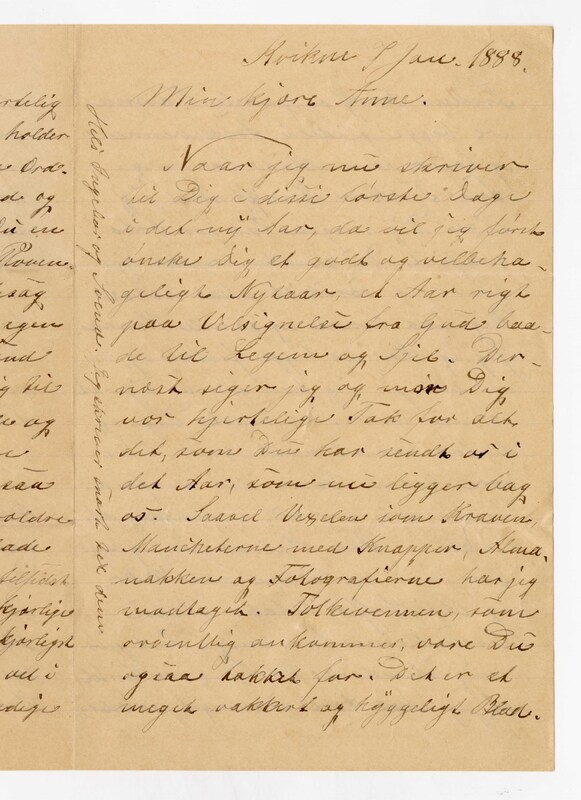 Kvikne 9 Jan. 1888.
Min kjære Anne.
Naar jeg nu skriver
til Dig i disse første Dage
i det ny Aar, da vil jeg først
ønske Dig et godt og velbeha-
geligt Nytaar, et Aar rigt
paa Velsignelse fra Gud baa-
de til Legem og Sjel. Der-
næst siger jeg og min Dig
vor hjertelige Tak for alt
det, som Du har sendt os i
det Aar, som nu ligger bag
os. Saavel Vexelen som Kraven,
Manchetterne med Knapper, Alma-
nakken og Fotografierne har jeg
modtaget. Folkevennen, som
ordentlig ankommer, være Du
ogsaa takket for. Det er et
meget vakkert og hyggeligt Blad.
Hils Ingeborg og Svend. Jeg skriver snart til dem
rtelig
holder
Ord-
d og
Du en
Prøven
saag
egen
end
g til
e og
e
saa
oldre
lade
tilfidst
kjærlige
kjærligst
vel i
edige